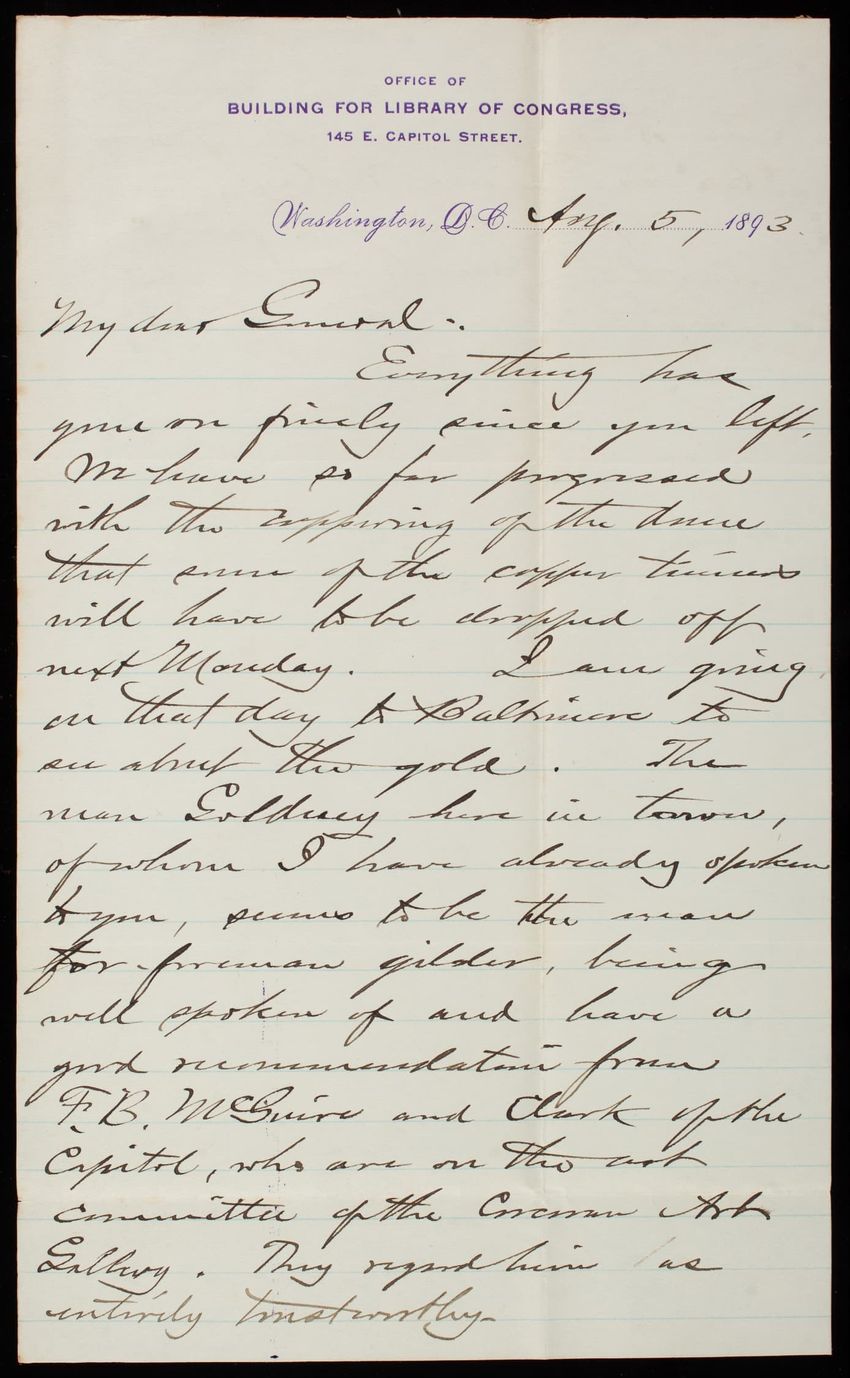 OFFICE OF
BUILDING FOR LIBRARY OF CONGRESS,
145 E. CAPITOL STREET.
Washington, D.C. Aug. 5, 1893.
My dear General -.
Everything has
gone on finely since you left.
We have so far progressed
with the coppering of the dome
that some of the copper tinners
will have to be dropped off
next Monday. I am going
on that day to Baltimore to
see about the gold. The
man Goldney here in town,
of whom I have already spoken
to you, seems to be the man
for foreman gilder, being
well spoken of and have a
good recommendation from
F. B. McGuire and Clark of the
Capitol, who are on the art
committee of the Corcoran Art
Gallery. They regard him as
entirely trustworthy-